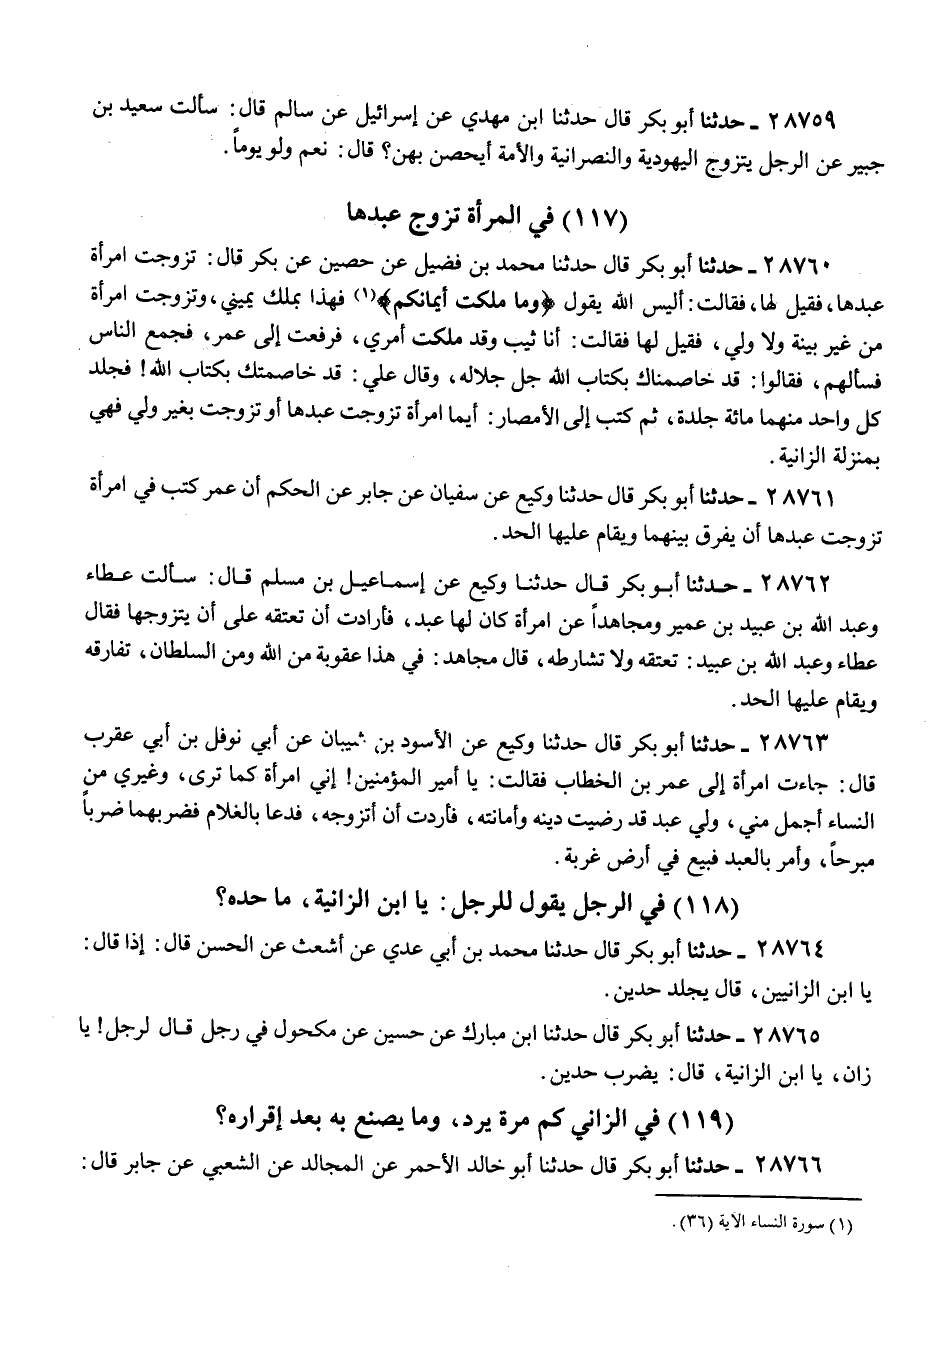 ٢٨٧٥٩ ـ حدثنا أبو بكر قال حدثنا ابن مهدي عن إسرائيل عن سالم قال: سألت سعيد بن
جبير عن الرجل يتزوج اليهودية والنصرانية والأمة أيحصن بهن؟ قال: نعم ولو يوماً.
(١١٧) في المرأة تزوج عبدها
٢٨٧٦٠ ـ حدثنا أبو بكر قال حدثنا محمد بن فضيل عن حصين عن بكر قال: تزوجت امرأة
عبدها، فقيل لها، فقالت: أليس الله يقول ﴿وما ملكت أيمانكم﴾(١) فهذا بملك يميني، وتزوجت امرأة
من غير بينة ولا ولي، فقيل لها فقالت: أنا ثيب وقد ملكت أمري، فرفعت إلى عمر، فجمع الناس
فسألهم، فقالوا: قد خاصمناك بكتاب الله جل جلاله، وقال علي: قد خاصمتك بكتاب الله! فجلد
كل واحد منهما مائة جلدة، ثم كتب إلى الأمصار: أيما امرأة تزوجت عبدها أو تزوجت بغير ولي فهي
بمنزلة الزانية.
٢٨٧٦١ ـ حدثنا أبو بكر قال حدثنا وكيع عن سفيان عن جابر عن الحكم أن عمر كتب في امرأة
تزوجت عبدها أن يفرق بينهما ويقام عليها الحد.
٢٨٧٦٢ ـ حدثنا أبو بكر قال حدثنا وكيع عن إسماعيل بن مسلم قال: سألت عطاء
وعبد الله بن عبيد بن عمير ومجاهداً عن امرأة كان لها عبد، فأرادت أن تعتقه على أن يتزوجها فقال
عطاء وعبد الله بن عبيد: تعتقه ولا تشارطه، قال مجاهد: في هذا عقوبة من الله ومن السلطان، تفارقه
ويقام عليها الحد.
٢٨٧٦٣ ـ حدثنا أبو بكر قال حدثنا وكيع عن الأسود بن شيبان عن أبي نوفل بن أبي عقرب
قال: جاءت امرأة إلى عمر بن الخطاب فقالت: يا أمير المؤمنين! إني امرأة كما ترى، وغيري من
النساء أجمل مني، ولي عبد قد رضيت دينه وأمانته، فأردت أن أتزوجه، فدعا بالغلام فضربهما ضرباً
مبرحاً، وأمر بالعبد فبيع في أرض غربة.
(١١٨) في الرجل يقول للرجل: يا ابن الزانية، ما حده؟
٢٨٧٦٤ ـ حدثنا أبو بكر قال حدثنا محمد بن أبي عدي عن أشعث عن الحسن قال: إذا قال:
يا ابن الزانيين، قال يجلد حدين.
٢٨٧٦٥ ـ حدثنا أبو بكر قال حدثنا ابن مبارك عن حسين عن مكحول في رجل قال لرجل! يا
زان، يا ابن الزانية، قال: يضرب حدين.
(١١٩) في الزاني كم مرة يرد، وما يصنع به بعد إقراره؟
٢٨٧٦٦ ـ حدثنا أبو بكر قال حدثنا أبو خالد الأحمر عن المجالد عن الشعبي عن جابر قال:
(١) سورة النساء الآية (٣٦).